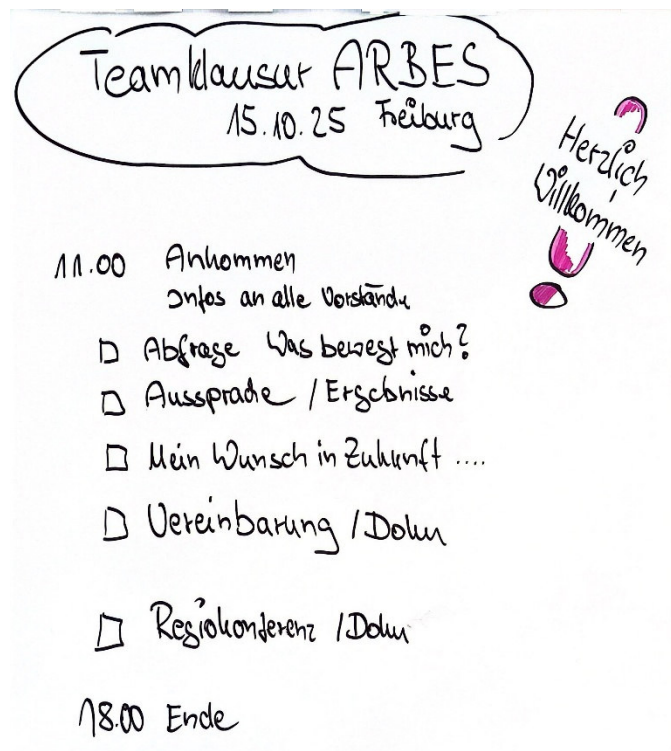 Teamklausur ARBES
15.10.25 Freiburg
Herzlich
Willkommen
11.00 Ankommen
Infos an alle Vorstände
Abfrage Was bewegt mich?
Aussprache / Ergebnisse
Mein Wunsch in Zukunft ....
Vereinbarung / Doku
Regiokonferenz / Doku
18.00 Ende